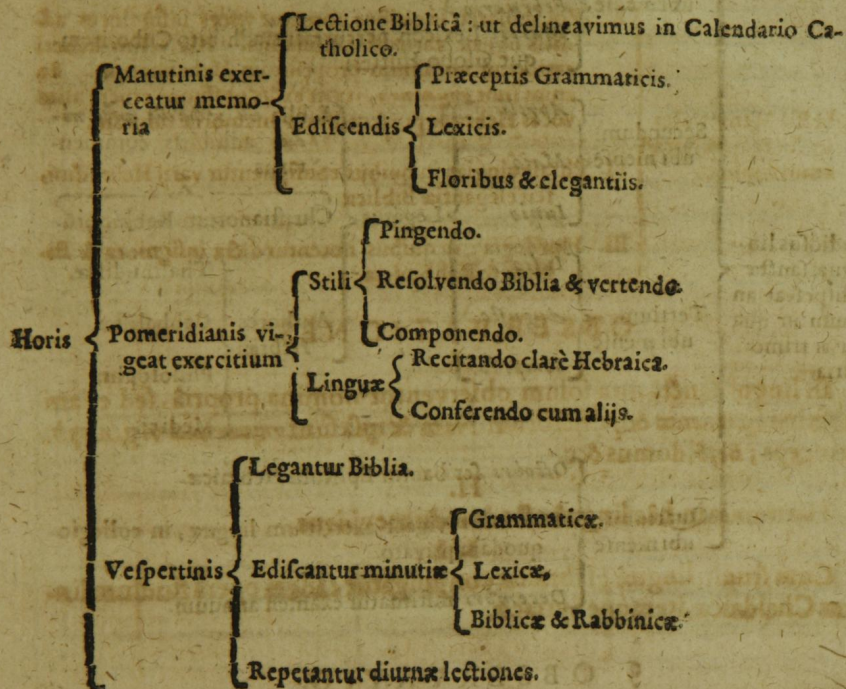 Lectione Biblicâ : ut delineavimus in Calendario Ca-
tholico.
Matutinis exer-
ceatur memo-
ria
Præceptis Grammaticis.
Ediſcendis
Lexicis.
Floribus & elegantiis.
Horis
Pomeridianis vi-
geat exercitium
Stili
Pingendo.
Reſolvendo Biblia & vertendo.
Componendo.
Linguæ
Recitando clarè Hebraica.
Conferendo cum alijs.
Veſpertinis
Legantur Biblia.
Ediſcantur minutiæ
Grammaticæ.
Lexicæ,
Biblicæ & Rabbinicæ.
Repetantur diurnæ lectiones.